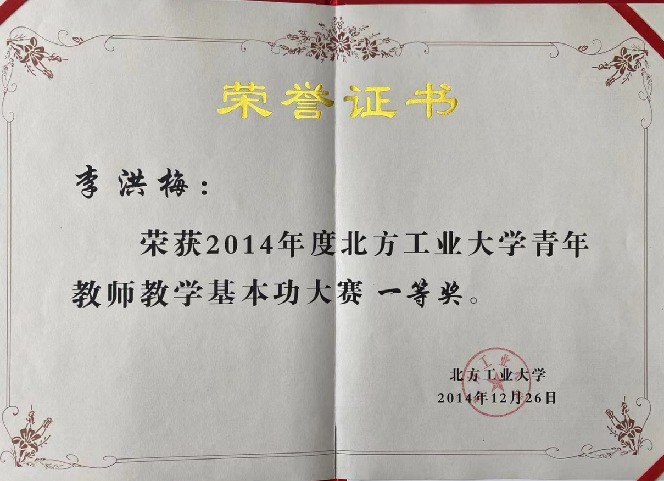 荣誉证书
李洪梅：
荣获2014年度北方工业大学青年
教师教学基本功大赛 一等奖。
北方工业大学
2014年12月26日